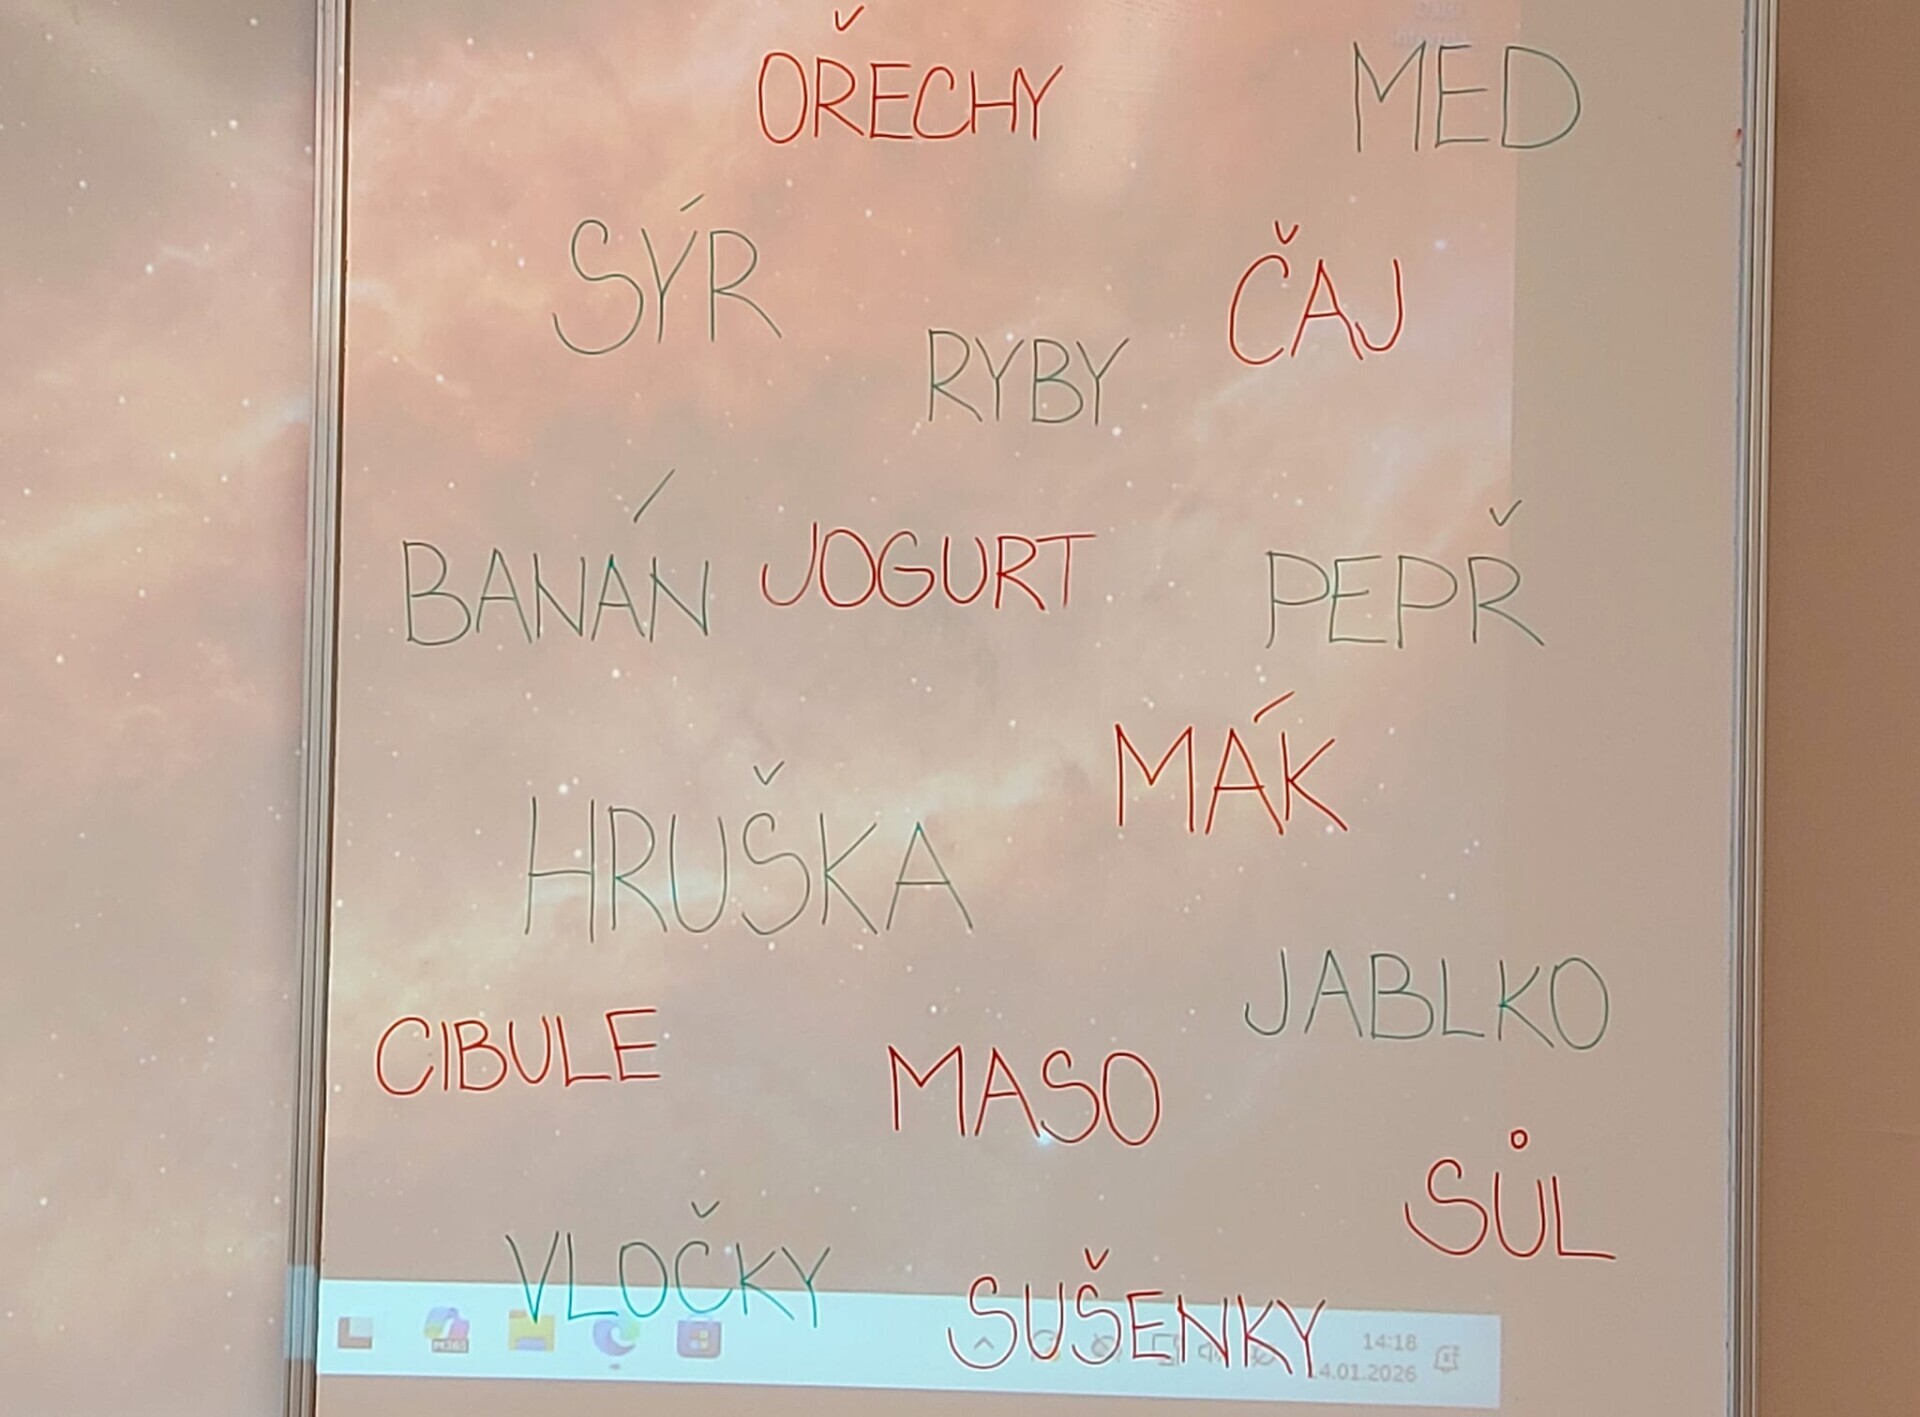 OŘECHY MED
SÝR ČAJ
RYBY
BANÁN JOGURT PEPŘ
MÁK
HRUŠKA
JABLKO
CIBULE MASO
SŮL
VLOČKY SUŠENKY
14:18
4.01.2026